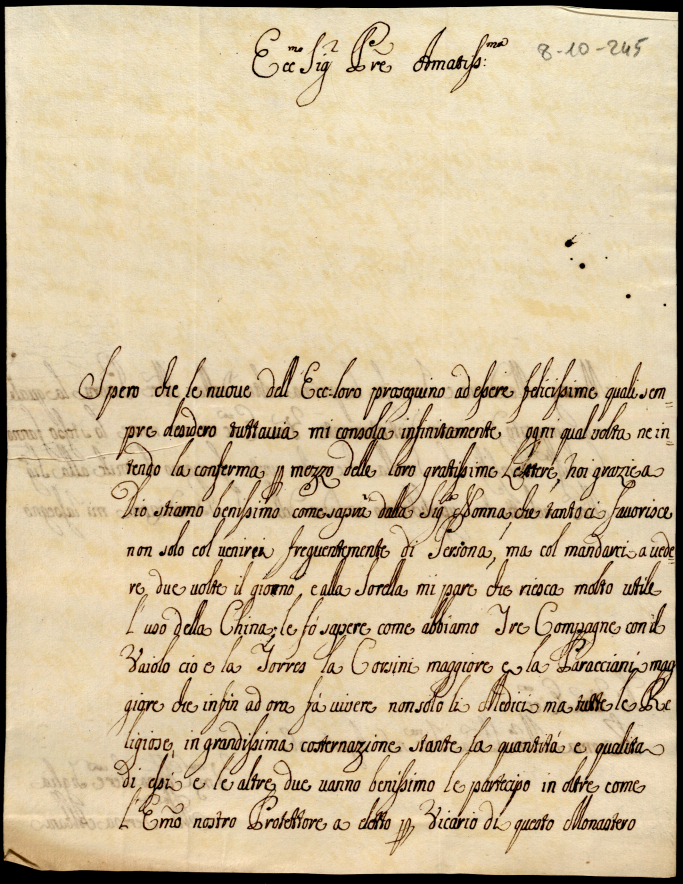 8-10-245
Ecc.mo Sig.r P̄re Amatiss:mo
Spero che le nuove dell'Ecc: loro proseguino ad essere felicissime quali sem=
pre desidero tuttavia mi consola infinitamente ogni qual volta ne in=
tendo la conferma p mezzo delle loro gratissime Lettere, noi grazie a
Dio stiamo benissimo come saprà dalla Sig.ra Nonna, che tanto ci favorisce
non solo col venire frequentemente di Persona, ma col mandarci a vede=
re due volte il giorno, e alla Sorella mi pare che riesca molto utile
l'uso della China; le fò sapere come abbiamo Tre Compagne con il
Vaiolo cio e la Torres la Corsini maggiore e la Paracciani mag
giore che infin ad ora fà vivere non solo li Medici ma tutte le Re
ligiose in grandissima costernazione stante la quantità e qualità
di essi e le altre due vanno benissimo le partecipo in oltre come
l'Em̄o nostro Protettore a eletto p Vicario di questo Monastero